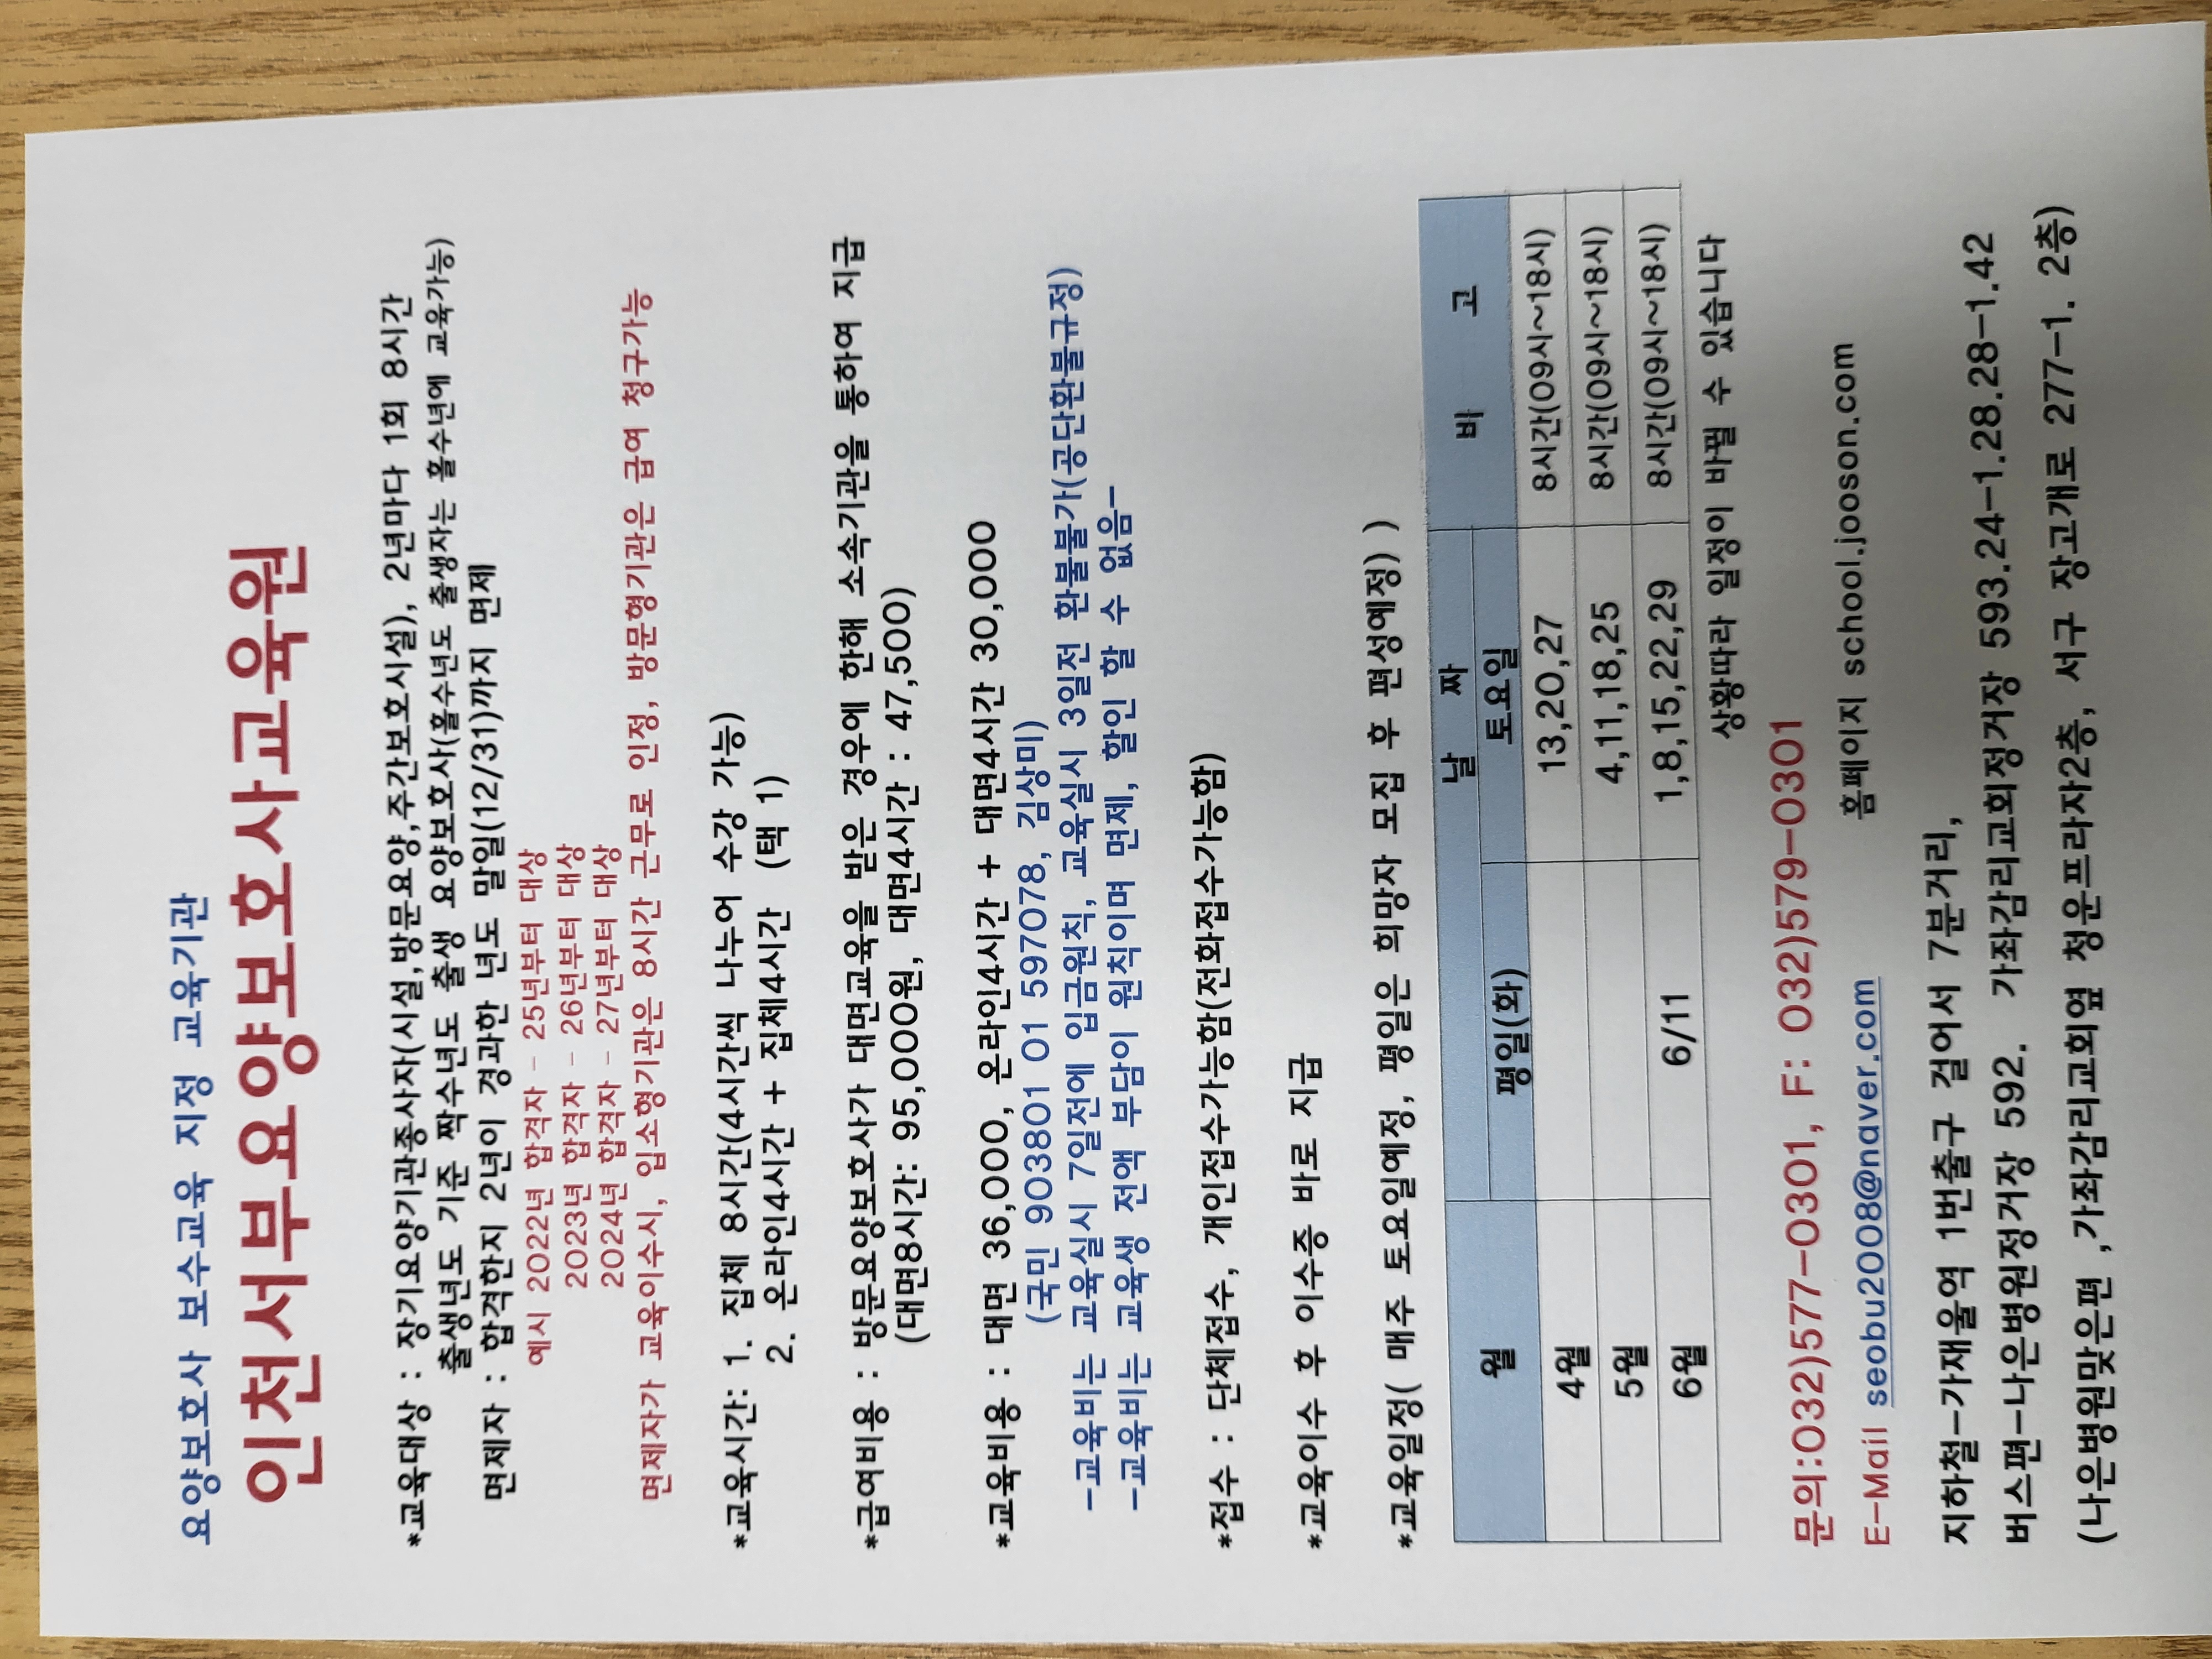 요양보호사 보수교육 지정 교육기관
인천서부요양보호사교육원
*교육대상 : 장기요양기관종사자(시설,방문요양,주간보호시설), 2년마다 1회 8시간
출생년도 기준 짝수년도 출생 요양보호사(홀수년도 출생자는 홀수년에 교육가능)
면제자 : 합격한지 2년이 경과한 년도 말일(12/31)까지 면제
예시 2022년 합격자 - 25년부터 대상
2023년 합격자 - 26년부터 대상
2024년 합격자 - 27년부터 대상
면제자가 교육이수시, 입소형기관은 8시간 근무로 인정, 방문형기관은 급여 청구가능
*교육시간: 1. 집체 8시간(4시간씩 나누어 수강 가능)
2. 온라인4시간 + 집체4시간 (택 1)
*급여비용 : 방문요양보호사가 대면교육을 받은 경우에 한해 소속기관을 통하여 지급
(대면8시간: 95,000원, 대면4시간 : 47,500)
*교육비용 : 대면 36,000, 온라인4시간 + 대면4시간 30,000
(국민 903801 01 597078, 김상미)
-교육비는 교육실시 7일전에 입금원칙, 교육실시 3일전 환불불가(공단환불규정)
-교육비는 교육생 전액 부담이 원칙이며 면제, 할인 할 수 없음-
*접수 : 단체접수, 개인접수가능함(전화접수가능함)
*교육이수 후 이수증 바로 지급
*교육일정( 매주 토요일예정, 평일은 희망자 모집 후 편성예정) )
월 날 짜 비 고
평일(화) 토요일
4월 13,20,27 8시간(09시~18시)
5월 4,11,18,25 8시간(09시~18시)
6월 6/11 1,8,15,22,29 8시간(09시~18시)
상황따라 일정이 바뀔 수 있습니다
문의:032)577-0301, F: 032)579-0301
E-Mail seobu2008@naver.com 홈페이지 school.jooson.com
지하철-가재울역 1번출구 걸어서 7분거리,
버스편-나은병원정거장 592. 가좌감리교회정거장 593.24-1.28.28-1.42
(나은병원맞은편 ,가좌감리교회옆 청운프라자2층, 서구 장고개로 277-1. 2층)